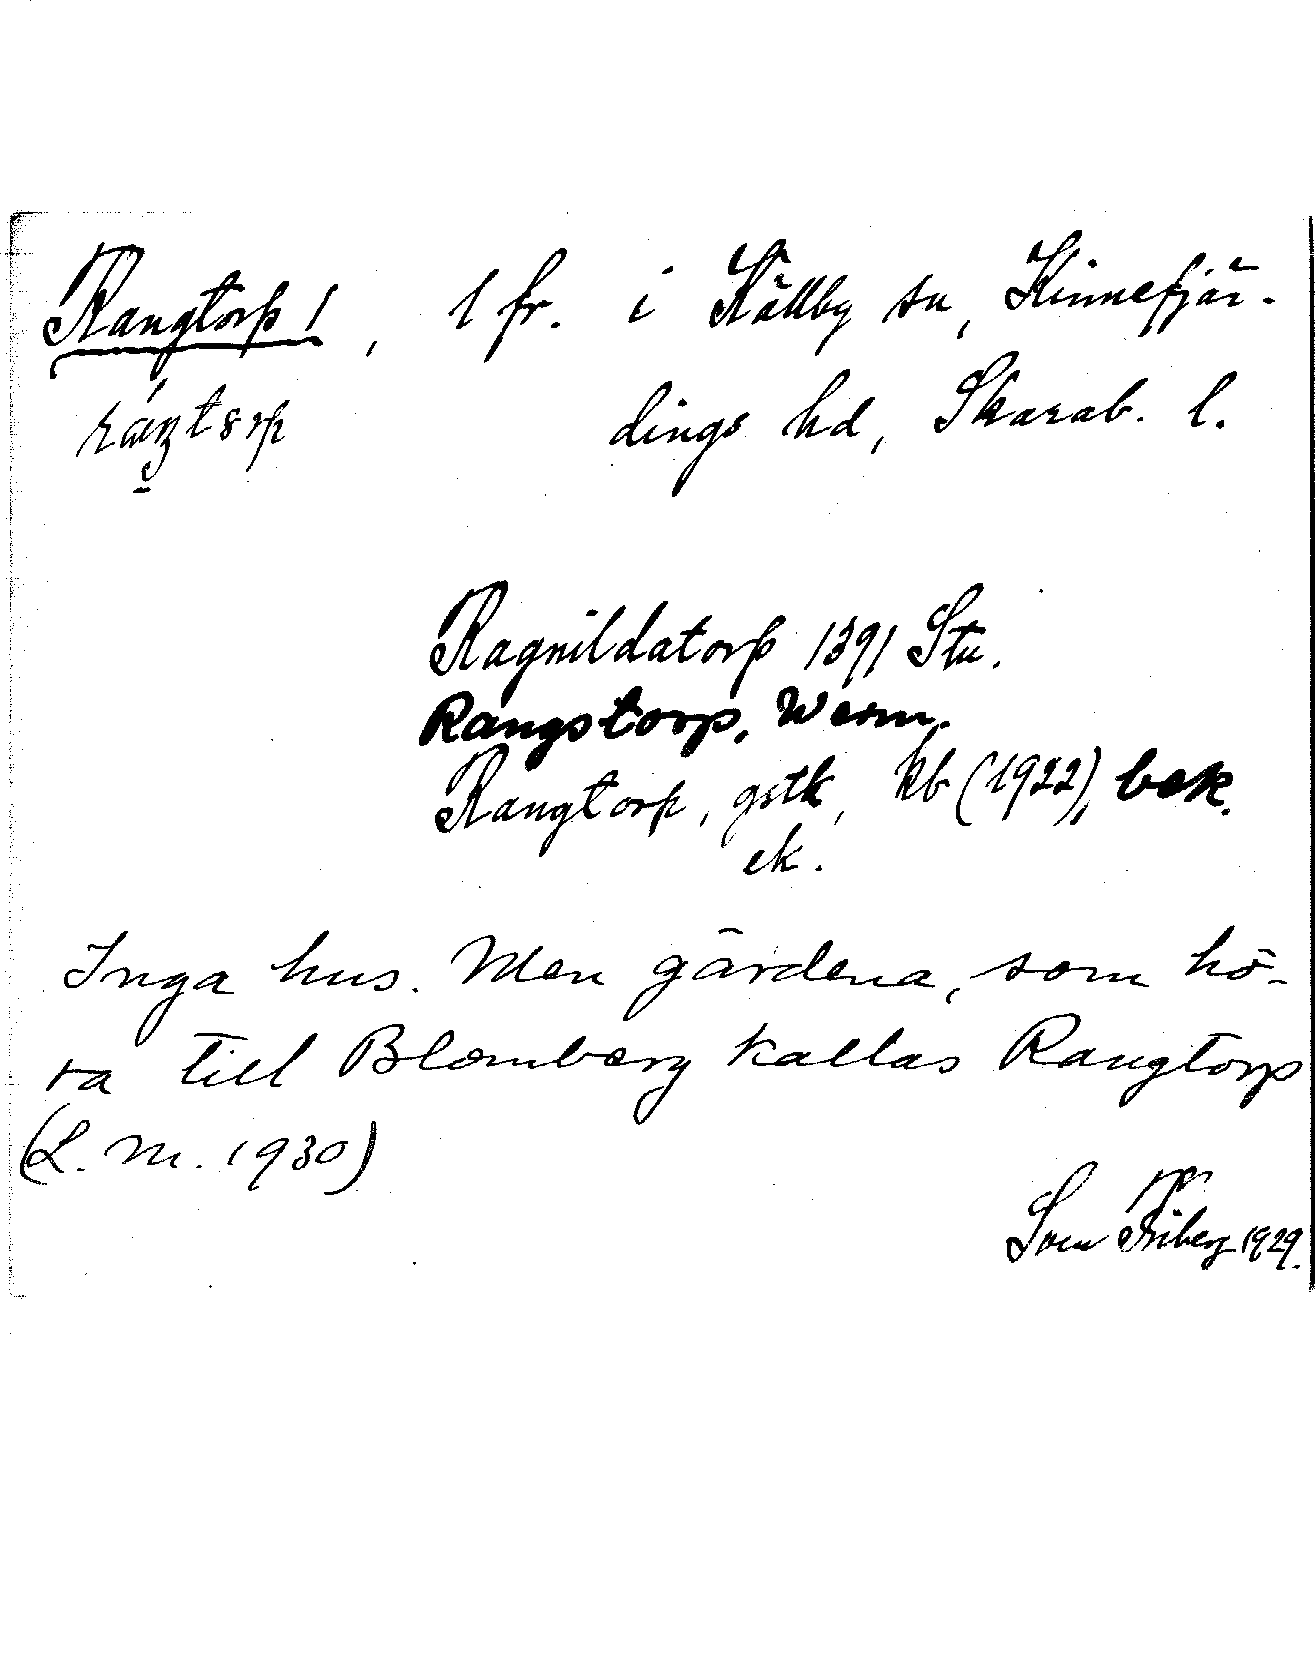 Rangtorp !, 1 fr. i Källby sn, Kinnefjär-
dings hd, Skarab. l.
Ragnildatorp 1391 Stu.
Rangstorp, Werm.
Rangtorp, gstk, kb (1922), bek.
ek.
Inga hus. Men gärdena, som hö-
ra till Blomberg kallas Rangtorp
(L. M. 1930)
Sven Friberg 1929.